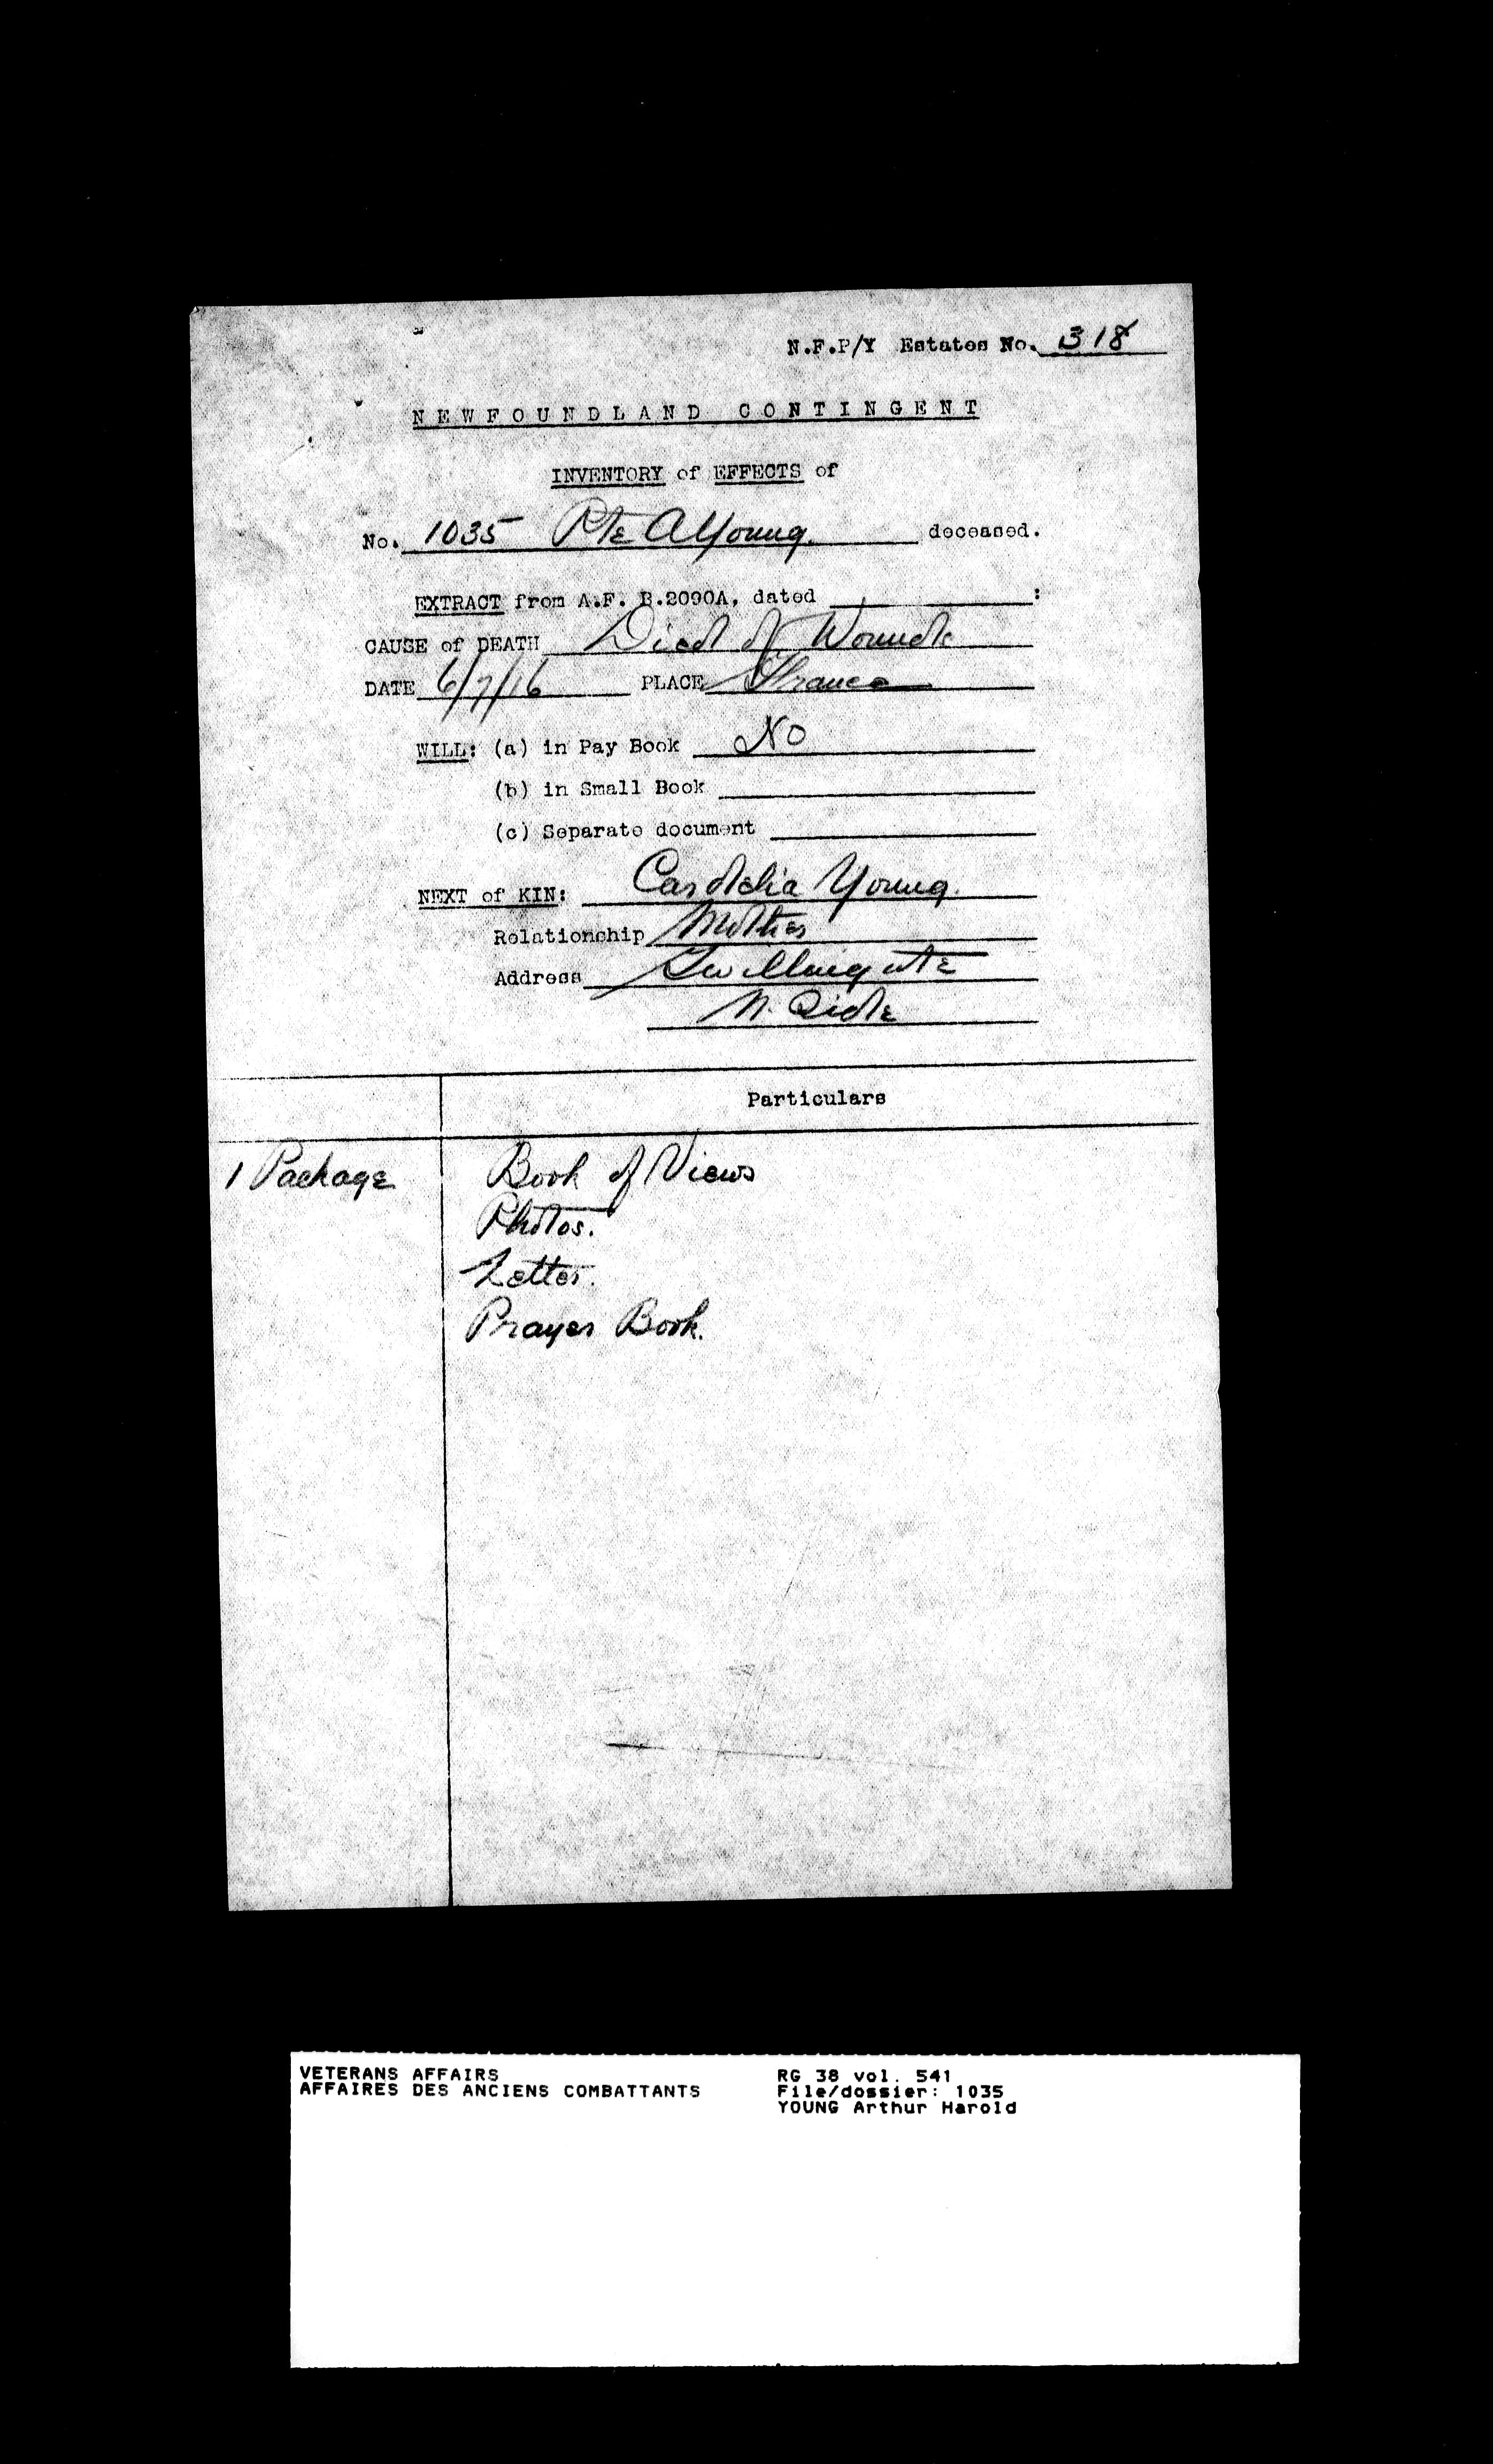 N.F.P/Y Estates No. 318
NEWFOUNDLAND CONTINGENT
INVENTORY of EFFECTS of
No. 1035 Pte A Young. deceased.
EXTRACT from A.F. B.2090A, dated :
CAUSE of DEATH Died of Wounds
DATE 6/7/16 PLACE France
WILL: (a) in Pay Book No
(b) in Small Book
(c) Separate document
NEXT of KIN: Cordelia Young.
Relationship Mother
Address Twillingate
N. Side
Particulars
1 Package Book of Views
Photos.
Letter.
Prayer Book.
VETERANS AFFAIRS RG 38 vol. 541
AFFAIRES DES ANCIENS COMBATTANTS File/dossier: 1035
YOUNG Arthur Harold